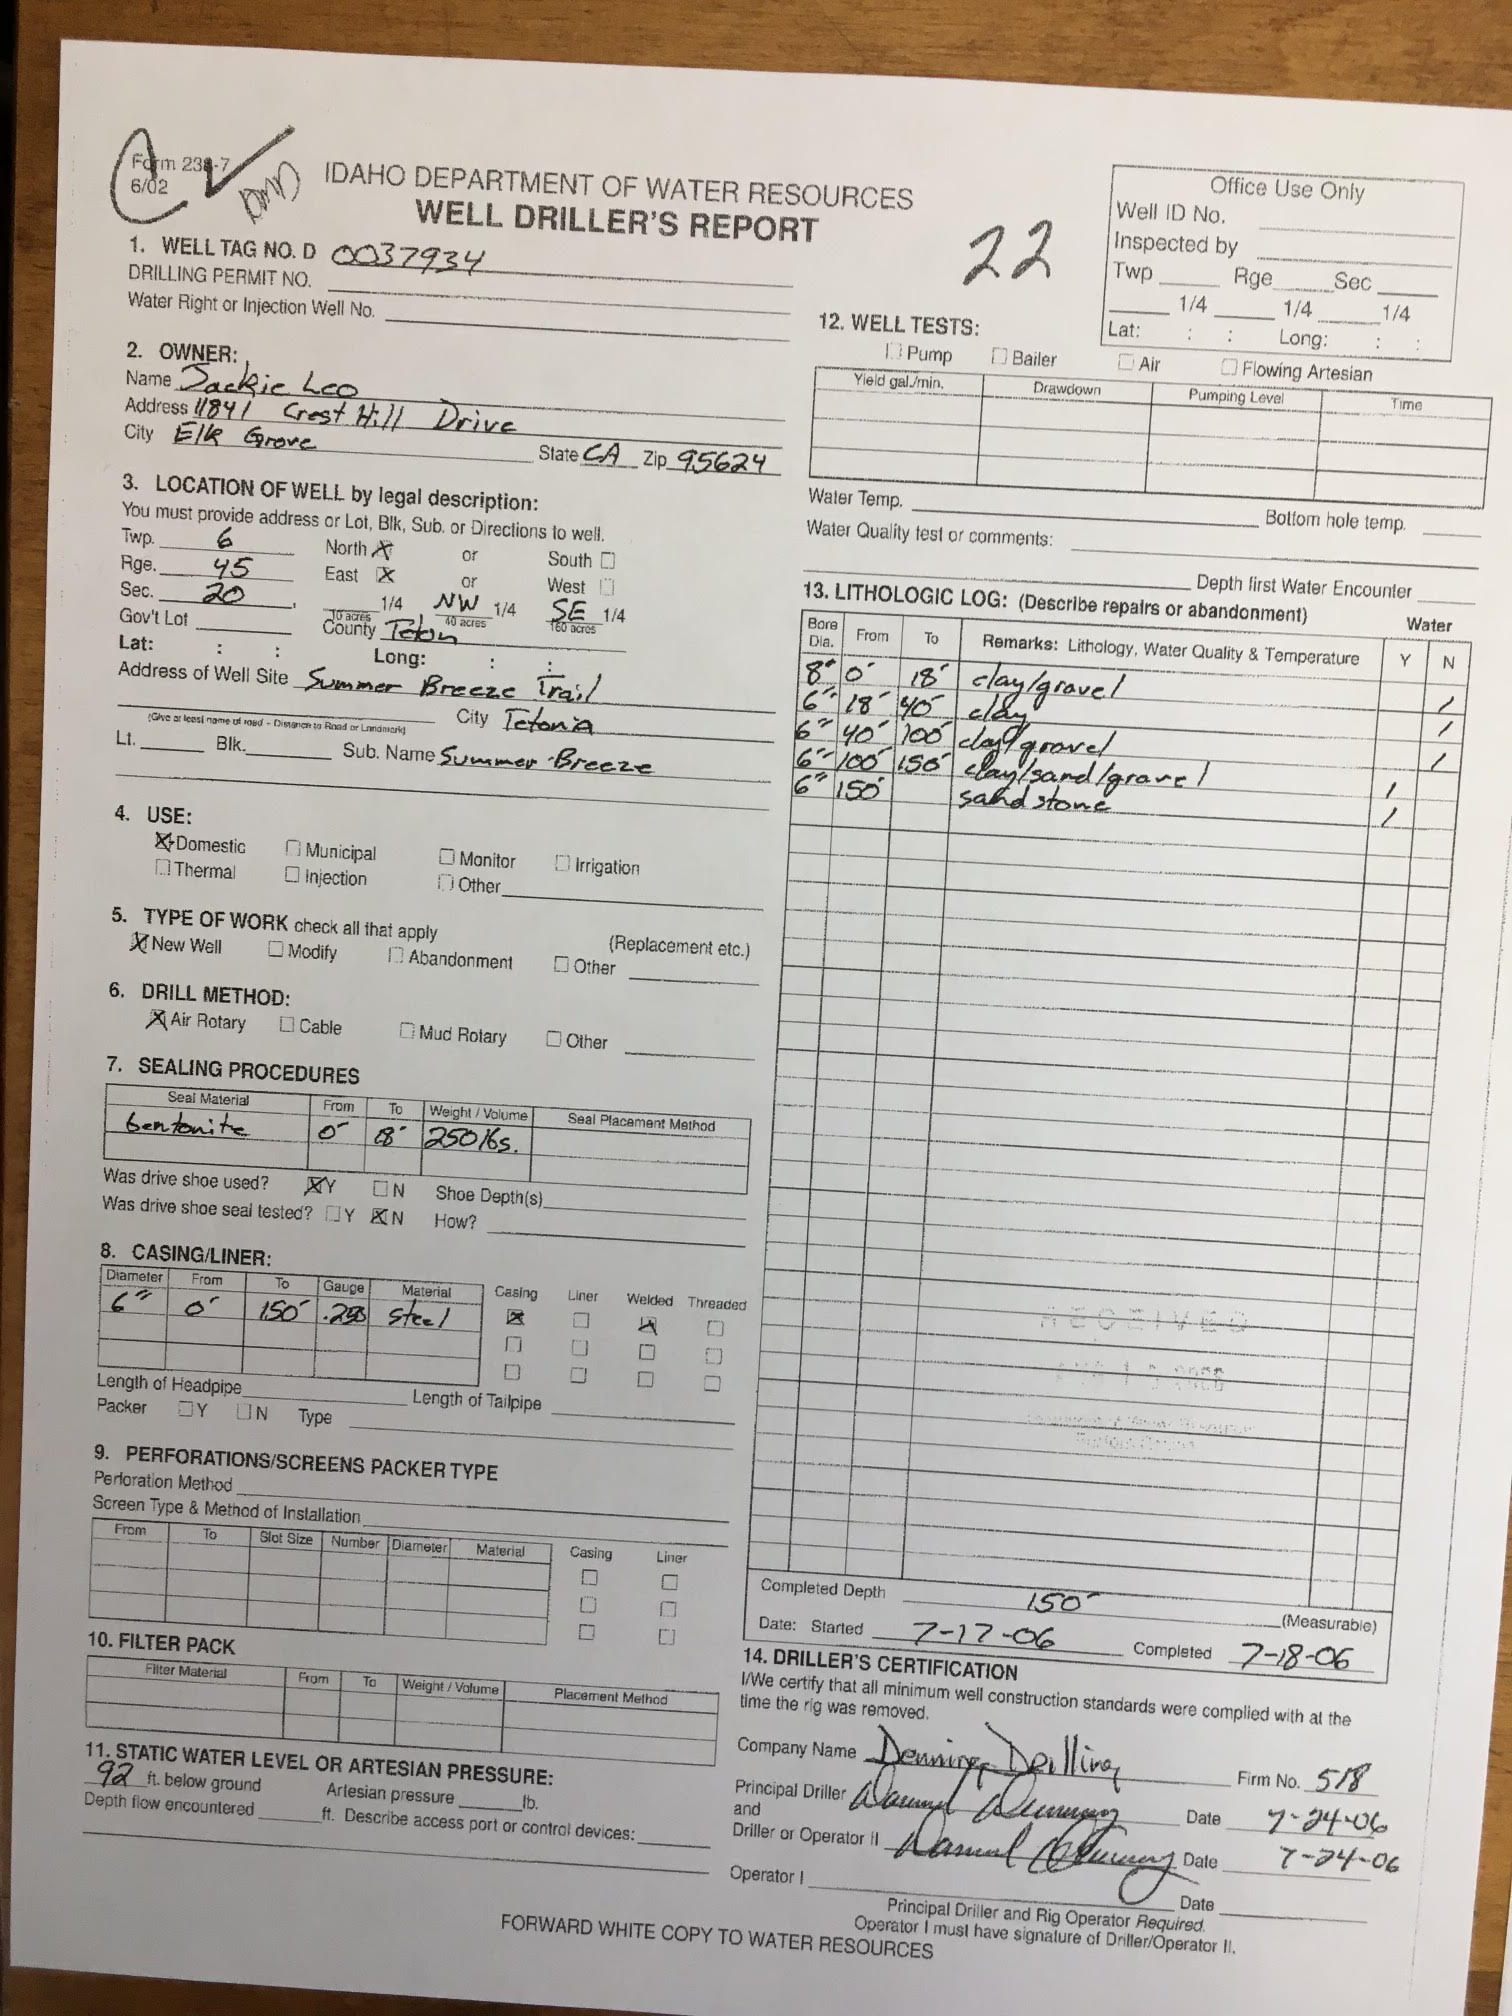 Form 238-7
6/02
DMD
IDAHO DEPARTMENT OF WATER RESOURCES
WELL DRILLER'S REPORT
22
Office Use Only
Well ID No.
Inspected by
Twp Rge Sec
1/4 1/4 1/4
Lat: : : Long: : :
1. WELL TAG NO. D 0037934
DRILLING PERMIT NO.
Water Right or Injection Well No.
2. OWNER:
Name Jackie Leo
Address 11841 Crest Hill Drive
City Elk Grove State CA Zip 95624
3. LOCATION OF WELL by legal description:
You must provide address or Lot, Blk, Sub. or Directions to well.
Twp. 6 North X or South ☐
Rge. 45 East X or West ☐
Sec. 20, 1/4 NW 1/4 SE 1/4
10 acres 40 acres 160 acres
Gov't Lot County Teton
Lat: : : Long: : :
Address of Well Site Summer Breeze Trail
(Give at least name of road - Distance to Road or Landmark)
City Tetonia
Lt. Blk. Sub. Name Summer Breeze
4. USE:
X Domestic ☐ Municipal ☐ Monitor ☐ Irrigation
☐ Thermal ☐ Injection ☐ Other
5. TYPE OF WORK check all that apply (Replacement etc.)
X New Well ☐ Modify ☐ Abandonment ☐ Other
6. DRILL METHOD:
X Air Rotary ☐ Cable ☐ Mud Rotary ☐ Other
7. SEALING PROCEDURES
Seal Material From To Weight / Volume Seal Placement Method
bentonite 0' 18' 250 lbs.
Was drive shoe used? X Y ☐ N Shoe Depth(s)
Was drive shoe seal tested? ☐ Y X N How?
8. CASING/LINER:
Diameter From To Gauge Material Casing Liner Welded Threaded
6" 0' 150' .250 steel X ☐ X ☐
☐ ☐ ☐ ☐
☐ ☐ ☐ ☐
Length of Headpipe Length of Tailpipe
Packer ☐ Y ☐ N Type
9. PERFORATIONS/SCREENS PACKER TYPE
Perforation Method
Screen Type & Method of Installation
From To Slot Size Number Diameter Material Casing Liner
☐ ☐
☐ ☐
☐ ☐
10. FILTER PACK
Filter Material From To Weight / Volume Placement Method
11. STATIC WATER LEVEL OR ARTESIAN PRESSURE:
92 ft. below ground Artesian pressure lb.
Depth flow encountered ft. Describe access port or control devices:
12. WELL TESTS:
☐ Pump ☐ Bailer ☐ Air ☐ Flowing Artesian
Yield gal./min. Drawdown Pumping Level Time
Water Temp. Bottom hole temp.
Water Quality test or comments:
Depth first Water Encounter
13. LITHOLOGIC LOG: (Describe repairs or abandonment) Water
Bore Dia. From To Remarks: Lithology, Water Quality & Temperature Y N
8" 0' 18' clay/gravel /
6" 18' 40' clay /
6" 40' 100' clay/gravel /
6" 100' 150' clay/sand/gravel /
6" 150' sandstone /
RECEIVED
Completed Depth 150' (Measurable)
Date: Started 7-17-06 Completed 7-18-06
14. DRILLER'S CERTIFICATION
I/We certify that all minimum well construction standards were complied with at the
time the rig was removed.
Company Name Denning Drilling Firm No. 518
Principal Driller Date 7-24-06
and
Driller or Operator II Date 7-24-06
Operator I Date
Principal Driller and Rig Operator Required.
Operator I must have signature of Driller/Operator II.
FORWARD WHITE COPY TO WATER RESOURCES